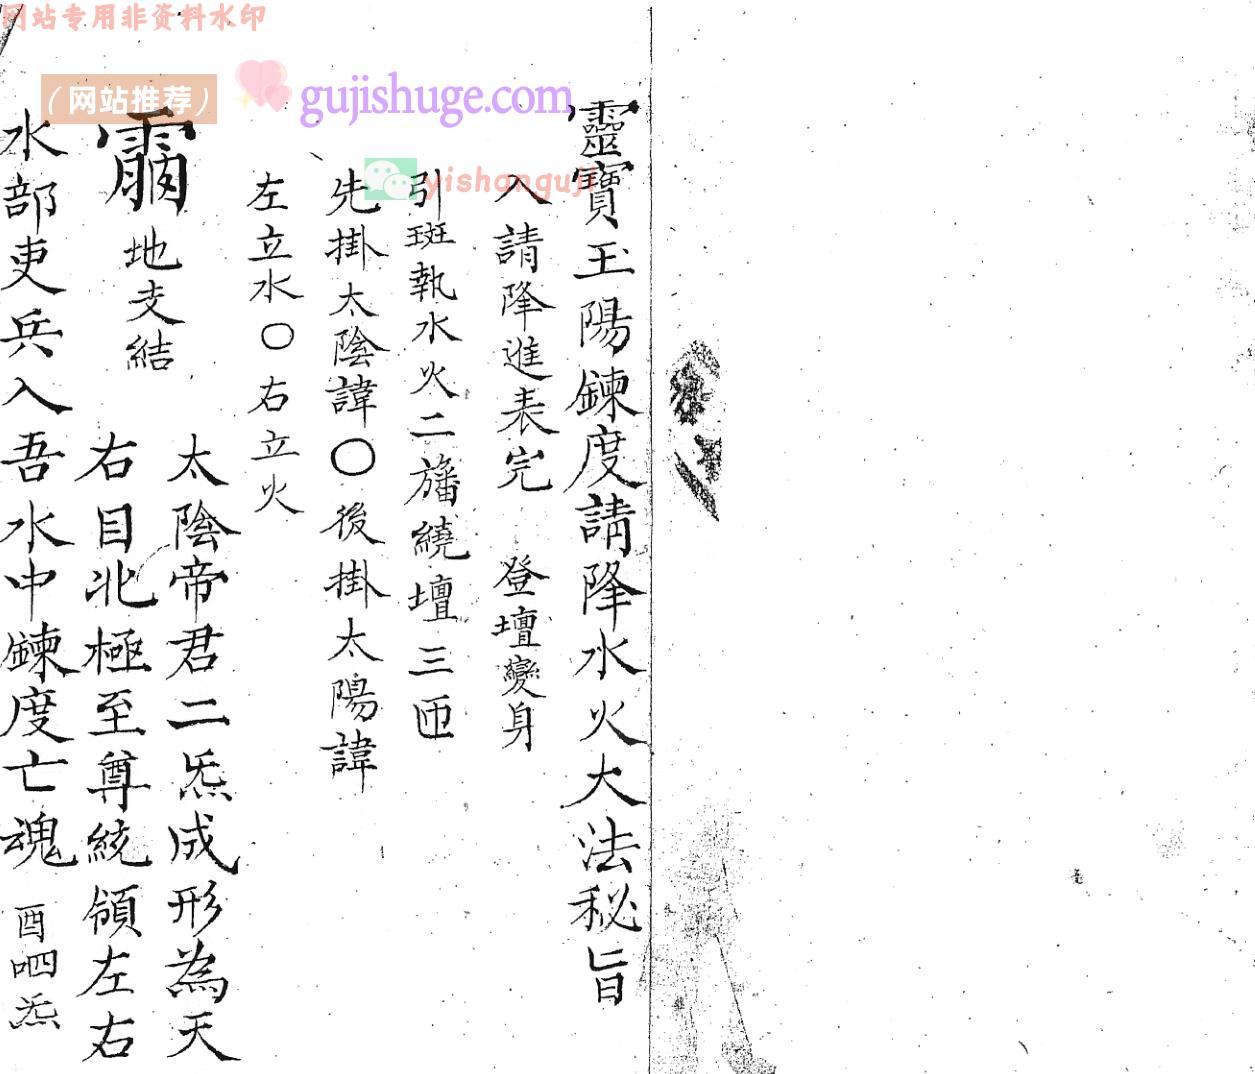 靈寶玉陽鍊度請降水火大法秘旨
入請降進表完 登壇變身
引班執水火二旛繞壇三匝
先掛太陰諱〇後掛太陽諱
左立水〇右立火
地支結 太陰帝君二炁成形為天
右目北極至尊統領左右
水部吏兵入吾水中鍊度亡魂 酉呬炁
网站专用非资料水印
(网站推荐)
gujishuge.com
yishanguji